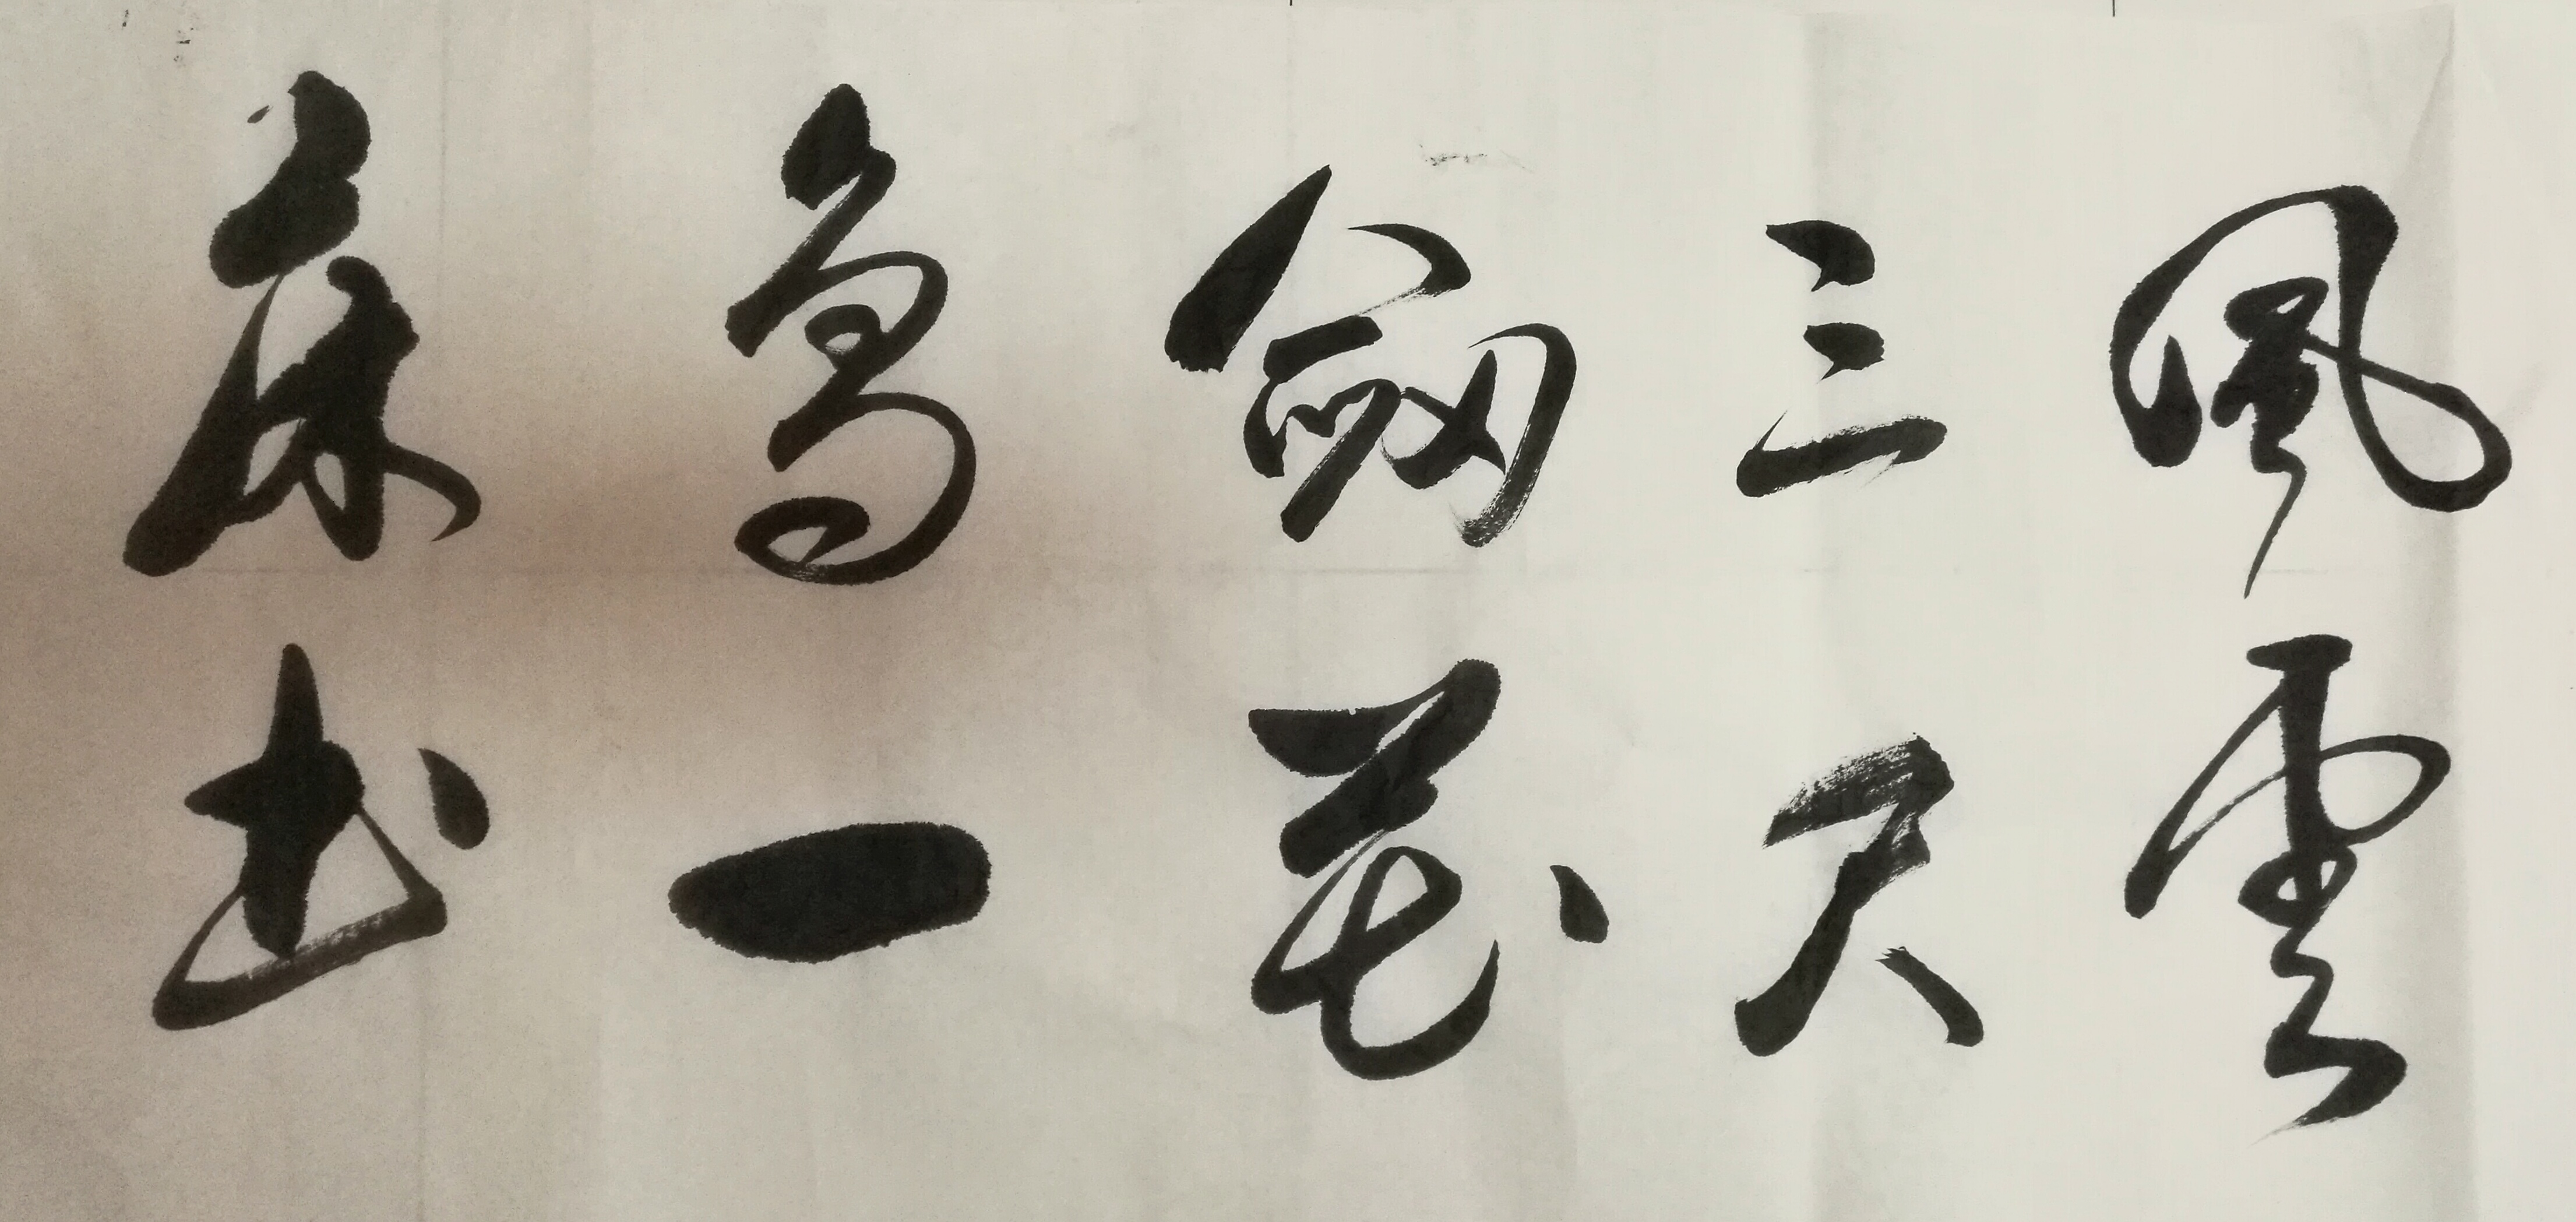 風雲
三尺
劍花
鳥一
床書